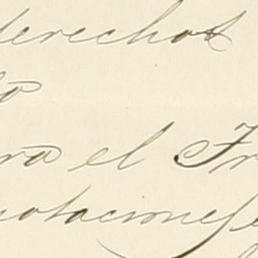 derechos
ra el Tr
otaciones